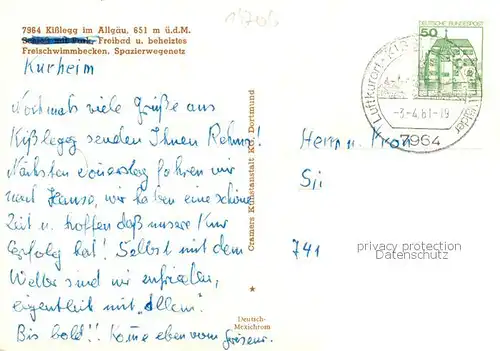 7964 Kißlegg im Allgäu, 651 m ü.d.M.
Schloß mit Park, Freibad u. beheiztes
Freischwimmbecken, Spazierwegenetz
Kurheim
Nochmals viele Grüße aus
Kißlegg senden Ihnen
Nächsten Donerstag fahren wir
nach Hause, wir haben eine schöne
Zeit u. hoffen daß unsere Kur
Erfolg hat! Selbst mit dem
Wetter sind wir zufrieden,
eigentlich mit „allem".
Bis bald!! Kome eben vom
Cramers Kunstanstalt KG, Dortmund
Deutsch-
Mexichrom
DEUTSCHE BUNDESPOST
50
Luftkurort
7964
Herrn u. Frau
741
privacy protection
Datenschutz